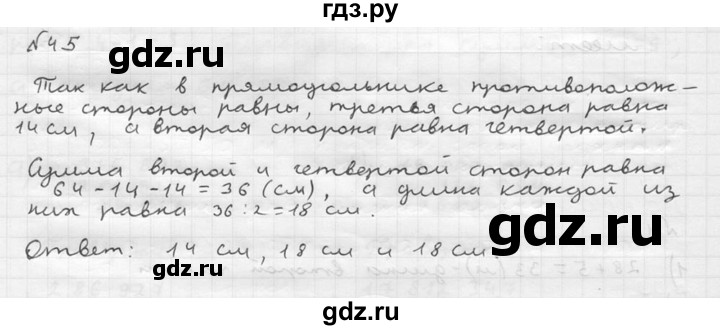 гдз.ру
№45
gdz.ru
gdz.ru
Так как в прямоугольнике противополож-
ные стороны равны, третья сторона равна
14 см, а вторая сторона равна четвертой.
Сумма второй и четвертой сторон равна
64-14-14=36 (см), а длина каждой из
них равна 36:2=18 см.
gdz.ru
Ответ: 14 см, 18 см и 18 см.
gdz.ru
gdz.ru
gdz.ru